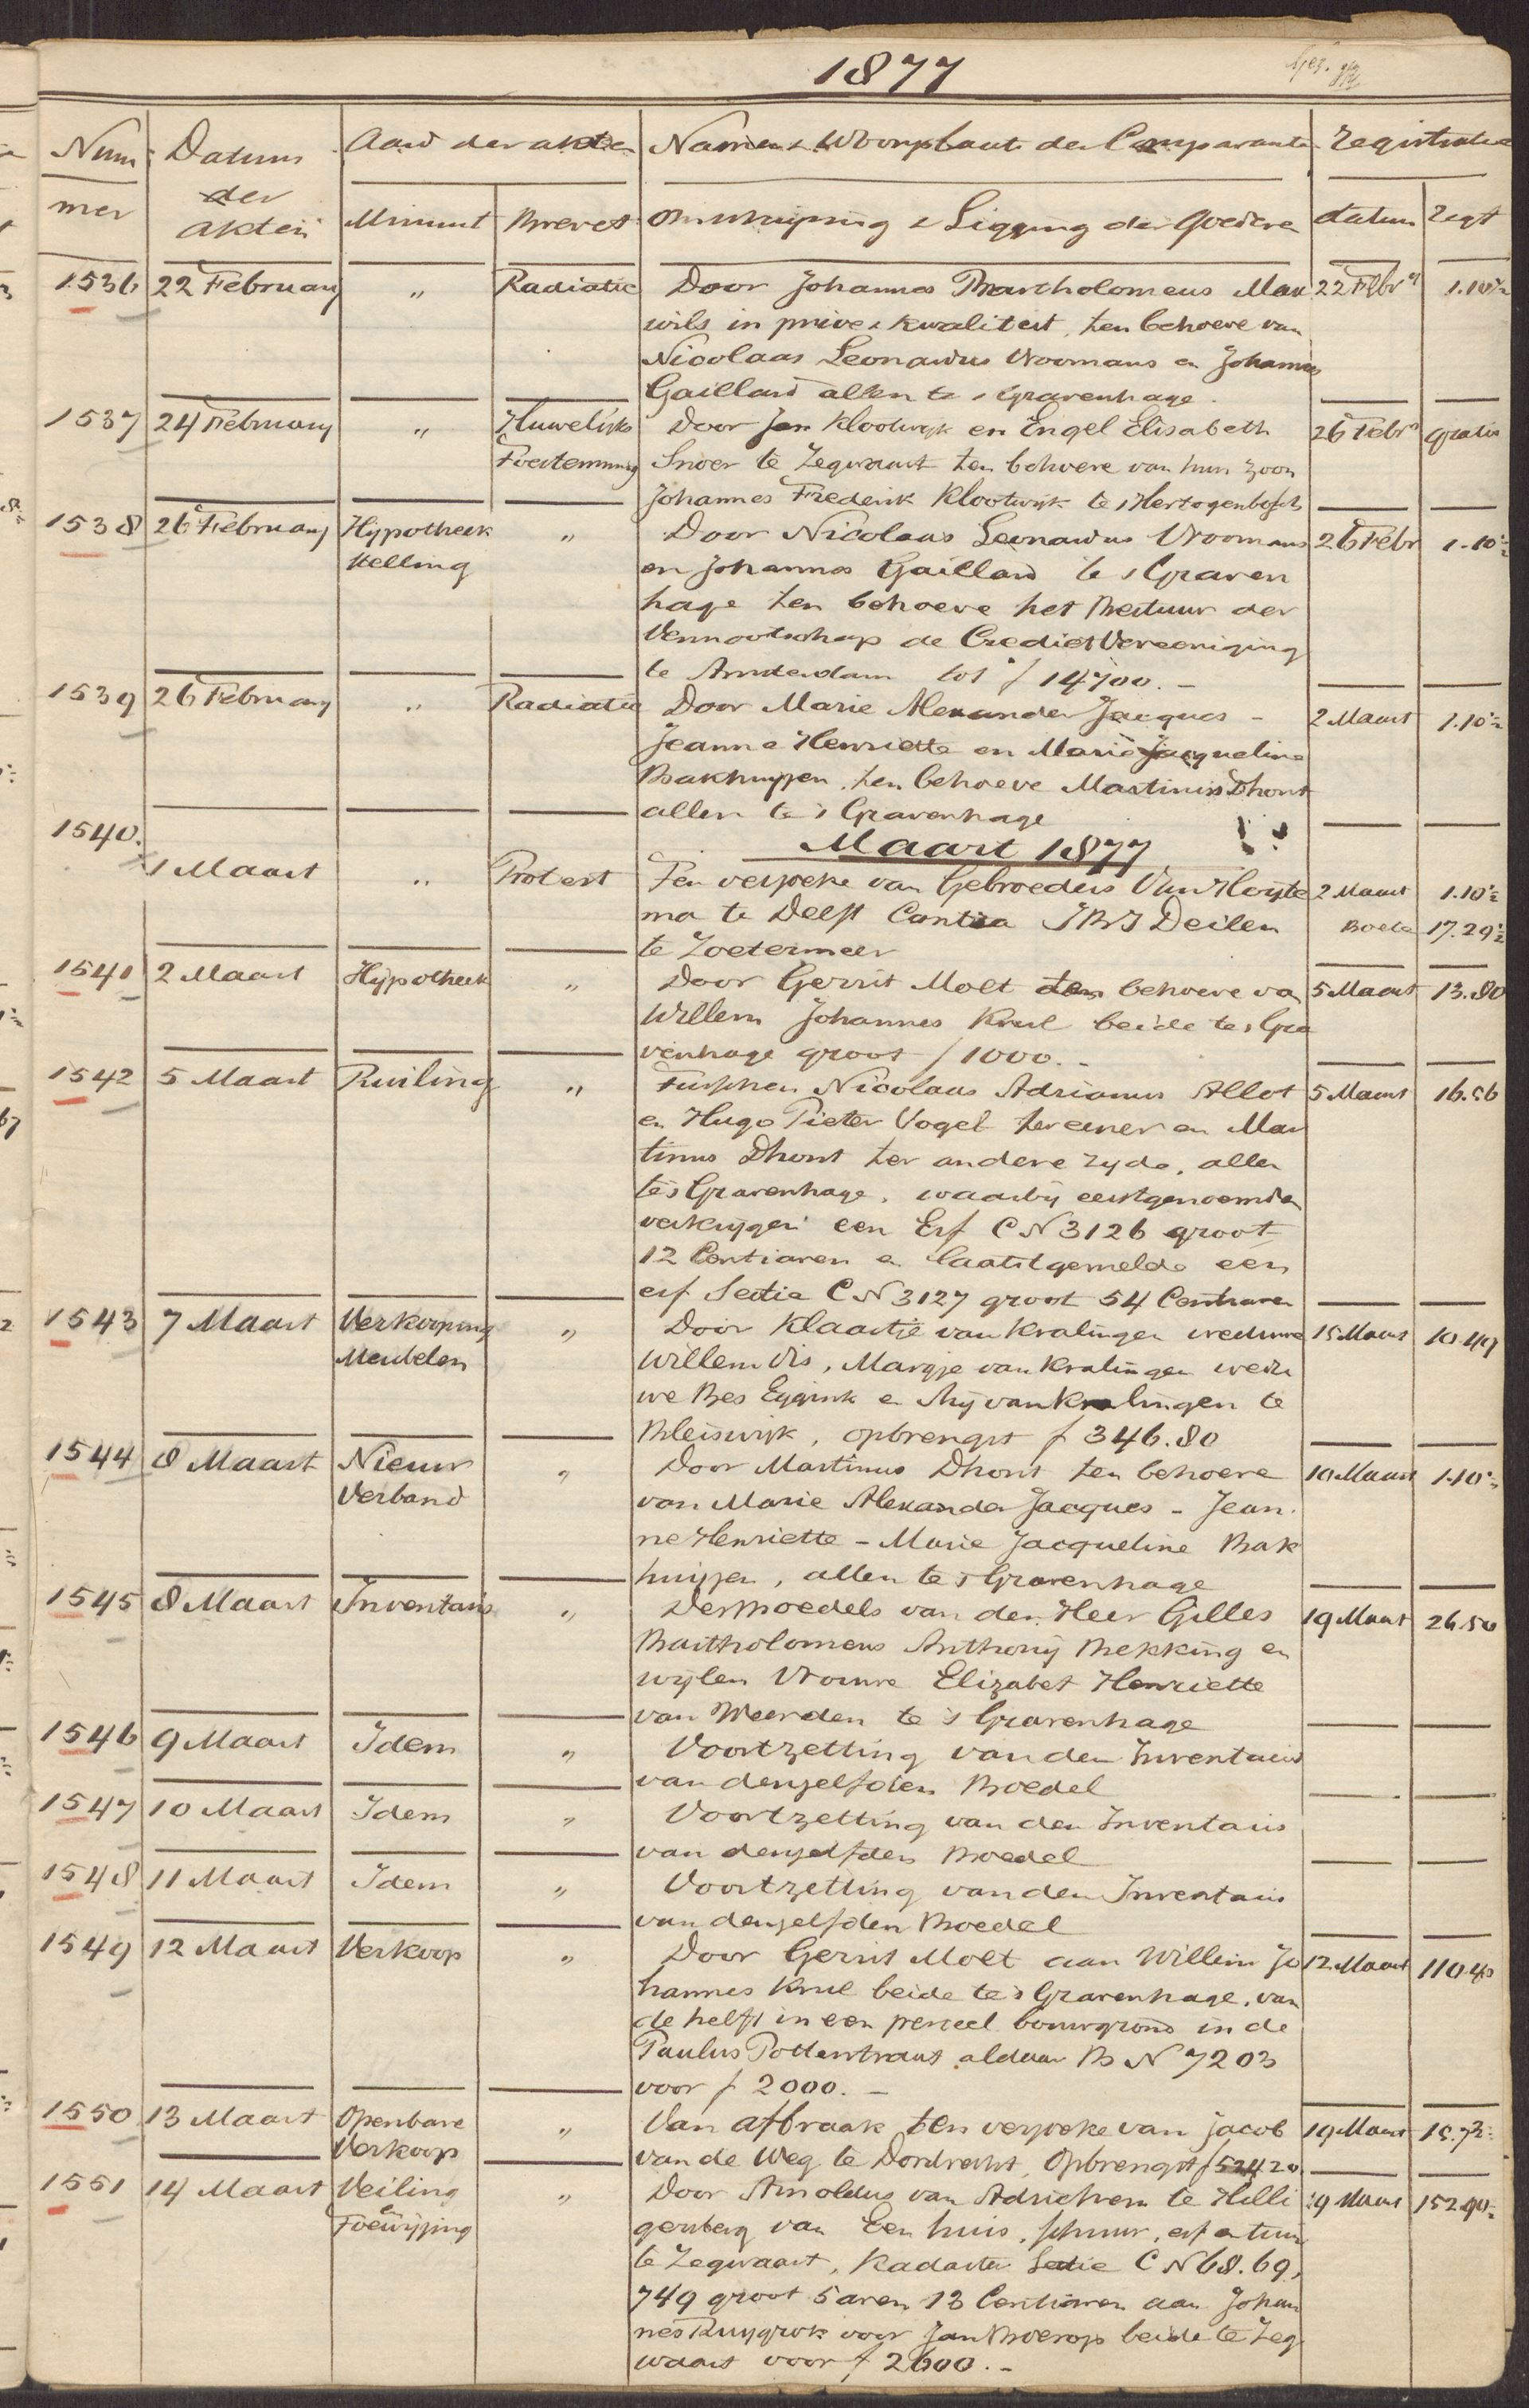 1877
Num Datum Aard der akten Namen & Woonplaats der Comparanten Registratie
mer der akten Minuut Brevet Omschrijving & Ligging der Goederen datum Regt
1536 22 February " Radiatie Door Johannes Bartholomeus Mau 22 Febry 1.10½
wils in privé & kwaliteit, ten behoeve van
Nicolaas Leonardus Vroomans en Johannes
Gaillard allen te s Gravenhage.
1537 24 February " Huwelijks Door Jan Klootwijk en Engel Elisabeth 26 Febry Gratis
Toestemming Snoer te Zegwaart ten behoeve van hun zoon
Johannes Frederik Klootwijk te s Hertogenbosch
1538 26 February Hypotheek " Door Nicolaas Leonardus Vroomans 26 Febr 1.10½
stelling en Johannes Gaillard te s Graven
hage ten behoeve het Bestuur der
Vennootschap de Crediet Vereeniging
te Amsterdam tot f 14700.-
1539 26 February " Radiatie Door Marie Alexander Jacques - 2 Maart 1.10½
Jeanne Henriette en Marie Jacqueline
Bakhuyzen, ten behoeve Martinus Dhont
allen te s Gravenhage
1540.
Maart 1877
1 Maart " Protest Ten verzoeke van Gebroeders Van Hoyte 2 Maart 1.10½
ma te Delft Contra J B J Deilen Boete 17.29½
te Zoetermeer
1541 2 Maart Hypotheek " Door Gerrit Molt ten behoeve van 5 Maart 13.80
Willem Johannes Krul beide te s Gra
venhage groot f 1000.-
1542 5 Maart Ruiling " Tusschen Nicolaas Adrianus Allot 5 Maart 16.56
en Hugo Pieter Vogel ter eener en Mar
tinus Dhont ter andere zyde, allen
te s Gravenhage, waarbij eerstgenoemden
verkrijgen een Erf C N 3126 groot
12 Centiaren en laatstgemelde een
erf Sectie C N 3127 groot 54 Centiaren
1543 7 Maart Verkooping " Door Klaartje van Kralingen weduwe 15 Maart 10.49
Meubelen Willem Vis, Margje van Kralingen wedu
we Bes Eggink en Arij van Kralingen te
Bleiswijk, opbrengst f 346.80
1544 8 Maart Nieuw " Door Martinus Dhont ten behoeve 10 Maart 1.10½
Verband van Marie Alexander Jacques - Jean
ne Henriette - Marie Jacqueline Bak
huijzen, allen te s Gravenhage
1545 8 Maart Inventaris " Des Boedels van den Heer Gilles 19 Maart 26.50
Bartholomeus Anthony Bekking en
wijlen Vrouwe Elizabet Henriette
van Weerden te s Gravenhage
1546 9 Maart Idem " Voortzetting van den Inventaris
van denzelfden Boedel
1547 10 Maart Idem " Voortzetting van den Inventaris
van denzelfden Boedel
1548 11 Maart Idem " Voortzetting van den Inventaris
van denzelfden Boedel
1549 12 Maart Verkoop " Door Gerrit Molt aan Willem Jo 12 Maart 110.40
hannes Krul beide te s Gravenhage, van
de helft in een perceel bouwgrond in de
Paulus Potterstraat aldaar B N 7203
voor f 2000.-
1550 13 Maart Openbare " Van afbraak ten verzoeke van Jacob 19 Maart 15.73½
Verkoop van de Weg te Dordrecht, Opbrengst f 524.20
1551 14 Maart Veiling " Door Arnoldus van Adrichem te Hilli 19 Maart 152.90½
Toewijzing gersberg van Een huis, schuur, erf en tuin
te Zegwaart, Kadaster Sectie C N 68.69,
749 groot 5 aren 13 Centiaren aan Johan
nes Ruygrok voor Jan Boerop beide te Zeg
waart voor f 2600.-